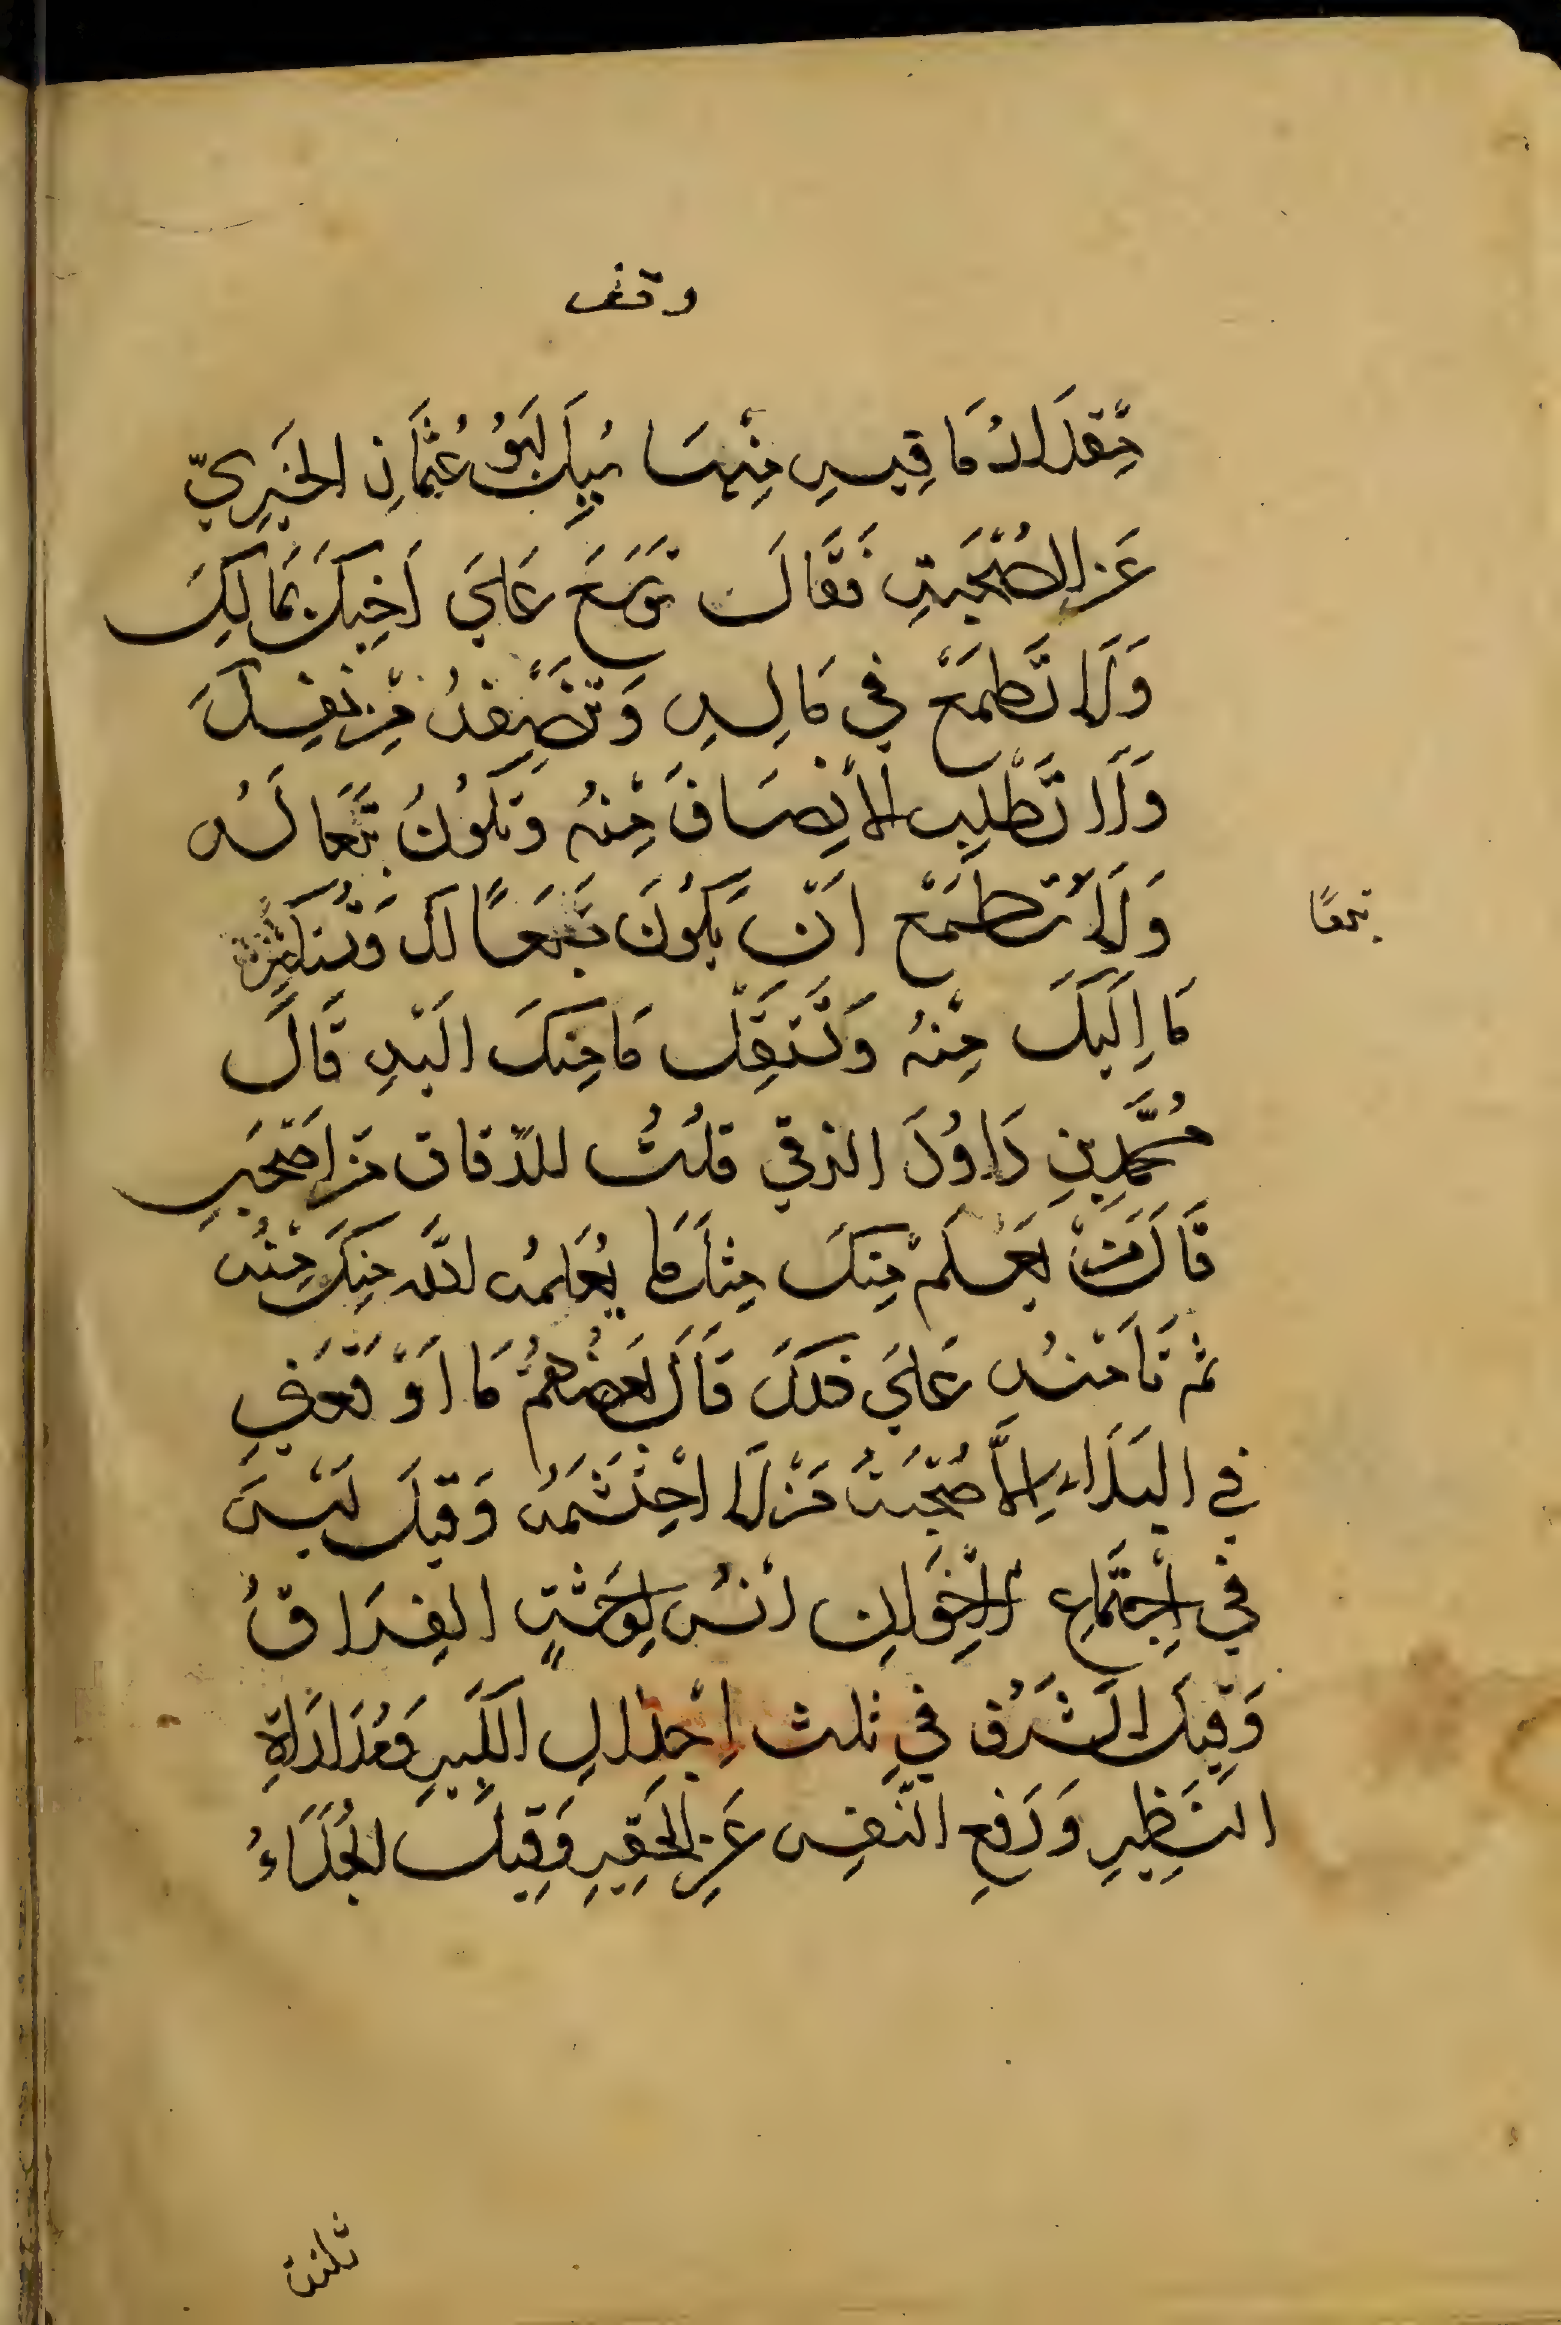 وقف
مِقدَارُ مَا قِيسِ مِنْهَا سُيِلَ أبُو عُثمَانِ الحَيرِيّ
عَنِ الصُحْبَةِ فَقَالَ تَوَسَعَ عَلَي اَخِيكَ بمَالِكَ
وَلَا تَطمَعْ فِي مَالِهِ وَتَنصِفهُ مِن نَفسِكَ
وَلَا تَطْلِب الأنِصَافَ مِنْهُ وَتكُونُ تَبَعَا لَهُ
وَلَا تَطمَعْ اَنْ يَكُونَ تَبَعًا لكَ وَتَستَكثِرُ
تبعًا
مَا اِلَيكَ مِنْهُ وَتَستَقِلّ مَا مِنكَ الَيْهِ قَالَ
مُحَمَّدِ بنِ دَاوُدَ الرقي قلتُ للدّقاق مَن اَصْحَبِ
قَالَ مَنْ يَعلَمْ مِنكَ مِثلَ مَا يُعلمُه اللَّه مِنكَ مِنْهُ
ثم تَامَنهُ عَلَي ذلكَ قَالَ بَعضُهمُ مَا اَوْقَعَنِي
في البَلَاءِ إلَّا صُحْبَةُ مَنْ لَا اَحْتَشَمهُ وَقيلَ لَيْسَ
فِي اِجْتِمَاعِ الاِخْوَانِ اُنسُ لِوَحْشَةِ الفِرَاقُ
وَقِيلَ الشَرَف فِي ثلث اِجْلالِ الكَبِيرِ وَمُدَارَاةِ
النَظِيرِ وَرَفعِ النَّفسِ عَنِ الحَقِيرِ وَقِيلَ الجُلَسَاءُ
ثلثة